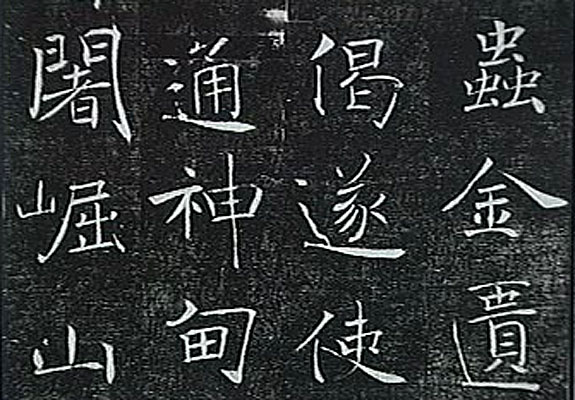 蟲金匱
偈遂使
通神甸
闍崛山